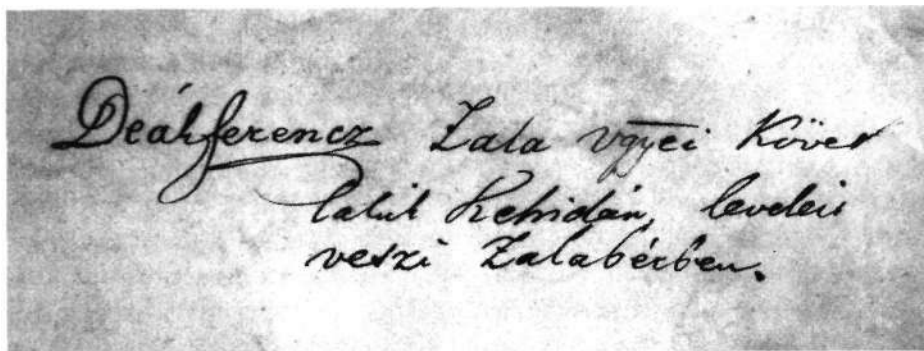 Deák ferencz Zala vgyei Követ
lakik Kehidán, leveleit
veszi Zalabérben.